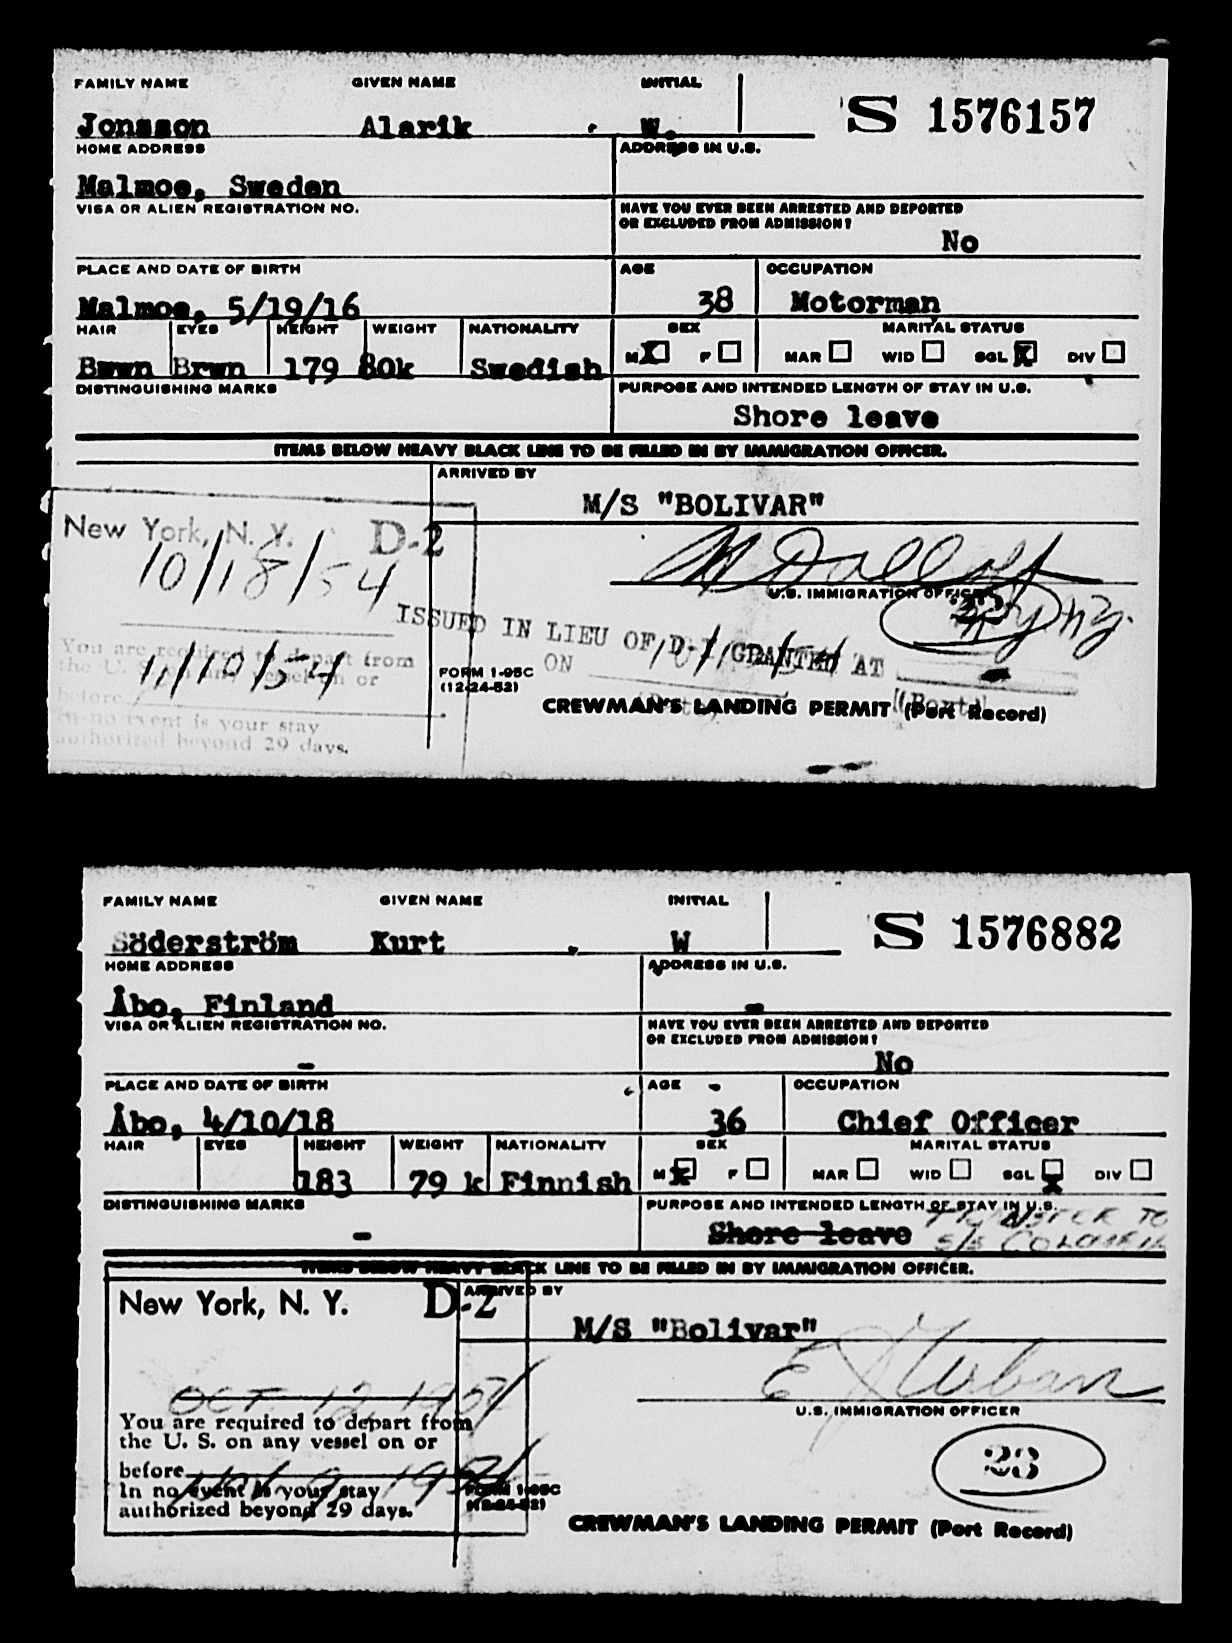 FAMILY NAME GIVEN NAME INITIAL
S 1576157
Jonsson Alarik W.
HOME ADDRESS ADDRESS IN U.S.
Malmoe, Sweden
VISA OR ALIEN REGISTRATION NO. HAVE YOU EVER BEEN ARRESTED AND DEPORTED
OR EXCLUDED FROM ADMISSION?
No
PLACE AND DATE OF BIRTH AGE OCCUPATION
Malmoe, 5/19/16 38 Motorman
HAIR EYES HEIGHT WEIGHT NATIONALITY SEX MARITAL STATUS
M X F MAR WID SGL X DIV
Brwn Brwn 179 80k Swedish
DISTINGUISHING MARKS PURPOSE AND INTENDED LENGTH OF STAY IN U.S.
Shore leave
ITEMS BELOW HEAVY BLACK LINE TO BE FILLED IN BY IMMIGRATION OFFICER.
ARRIVED BY
M/S "BOLIVAR"
New York, N. Y. D-2
10/18/54
U.S. IMMIGRATION OFFICER
ISSUED IN LIEU OF D-1 GRANTED AT
You are required to depart from
the U. S. on any vessel on or
before 11/10/54
ON
FORM 1-95C
(12-24-52)
In no event is your stay
authorized beyond 29 days.
CREWMAN'S LANDING PERMIT (Port Record)
FAMILY NAME GIVEN NAME INITIAL
S 1576882
Söderström Kurt W
HOME ADDRESS ADDRESS IN U.S.
Åbo, Finland -
VISA OR ALIEN REGISTRATION NO. HAVE YOU EVER BEEN ARRESTED AND DEPORTED
OR EXCLUDED FROM ADMISSION?
- No
PLACE AND DATE OF BIRTH AGE OCCUPATION
Åbo, 4/10/18 36 Chief Officer
HAIR EYES HEIGHT WEIGHT NATIONALITY SEX MARITAL STATUS
M X F MAR WID SGL X DIV
183 79 k Finnish
DISTINGUISHING MARKS PURPOSE AND INTENDED LENGTH OF STAY IN U.S.
- Shore leave TRANSFER TO
S/S
ITEMS BELOW HEAVY BLACK LINE TO BE FILLED IN BY IMMIGRATION OFFICER.
New York, N. Y. D-2
ARRIVED BY
M/S "Bolivar"
OCT 12, 1954
U.S. IMMIGRATION OFFICER
You are required to depart from
the U. S. on any vessel on or
before Nov 9, 1954
23
In no event is your stay
authorized beyond 29 days.
FORM 1-95C
(12-24-52)
CREWMAN'S LANDING PERMIT (Port Record)